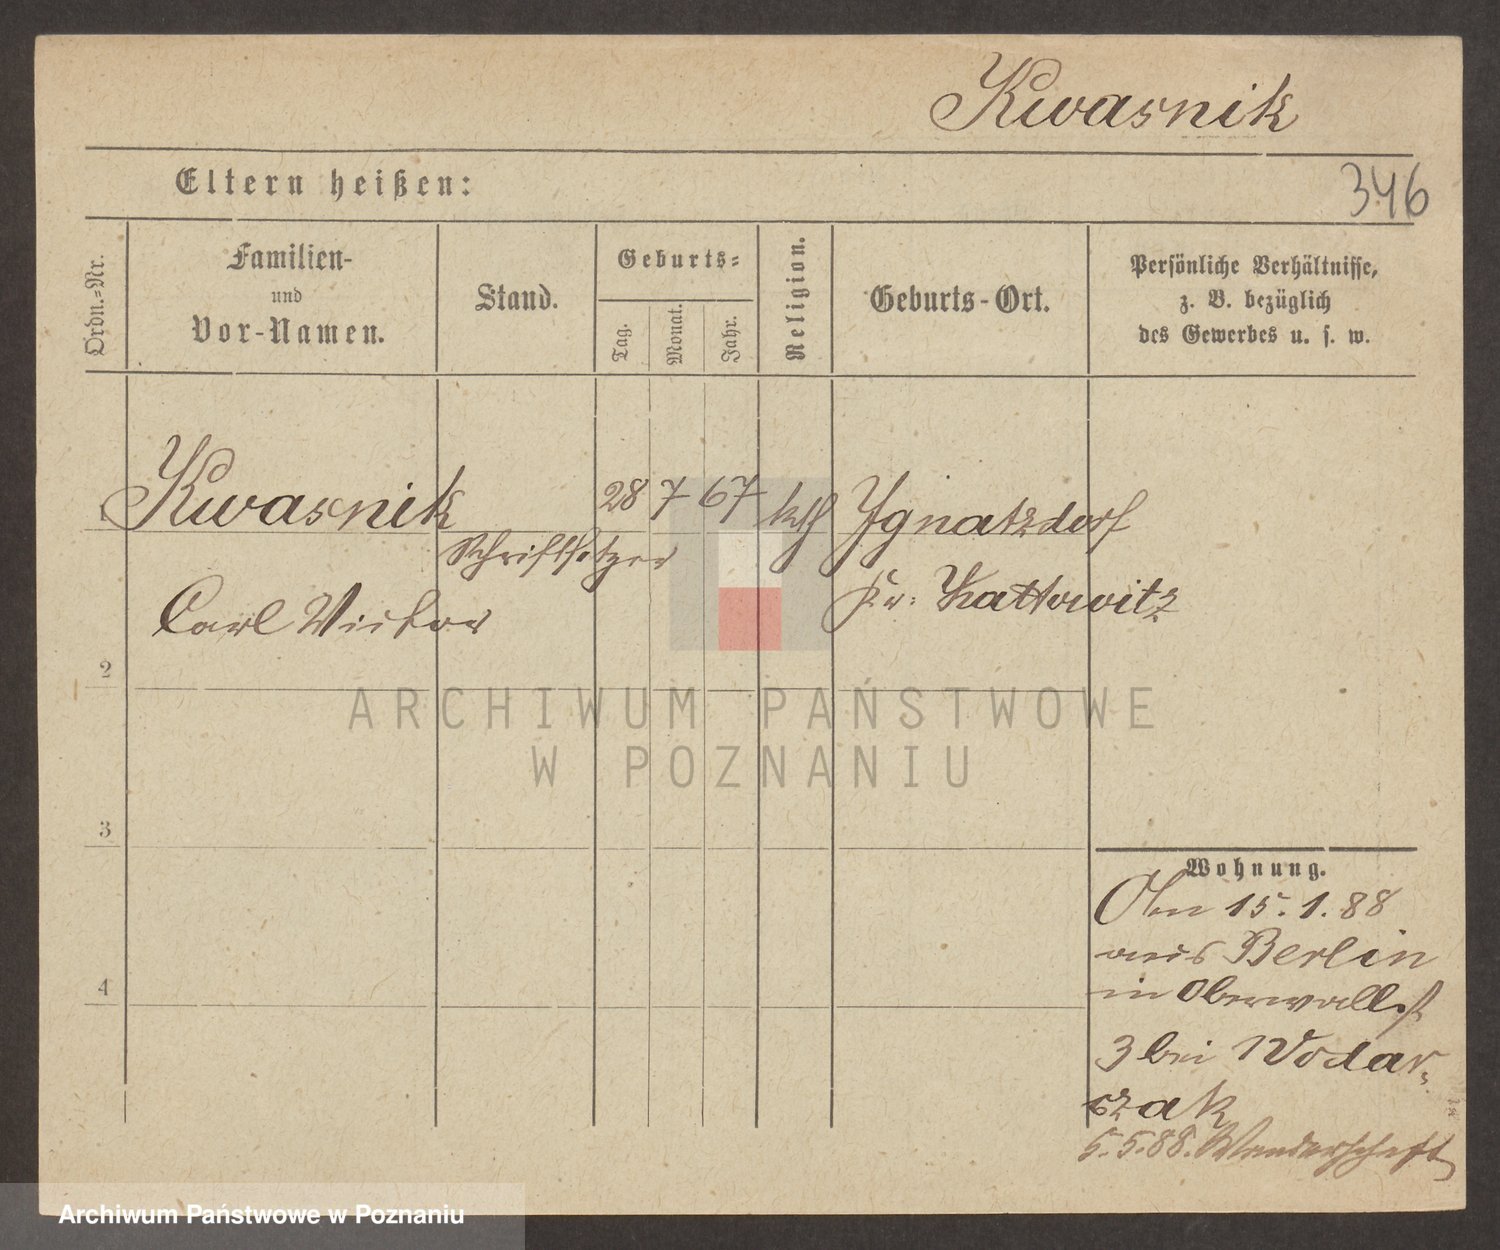 Kwasnik
Eltern heißen:
346
Ordn.=Nr.
Familien-
und
Vor-Namen.
Stand.
Geburts=
Tag.
Monat.
Jahr.
Religion.
Geburts-Ort.
Persönliche Verhältnisse,
z. B. bezüglich
des Gewerbes u. s. w.
1
Kwasnik
28 7 67
kth
Ignatzdorf
Schriftsetzer
Carl Victor
Kr. Kattowitz
2
ARCHIWUM PAŃSTWOWE
W POZNANIU
3
Wohnung.
Am 15.1.88
aus Berlin
4
in Oberwallst
3 bei Wodar=
czak
5.5.88. Wanderschaft
Archiwum Państwowe w Poznaniu